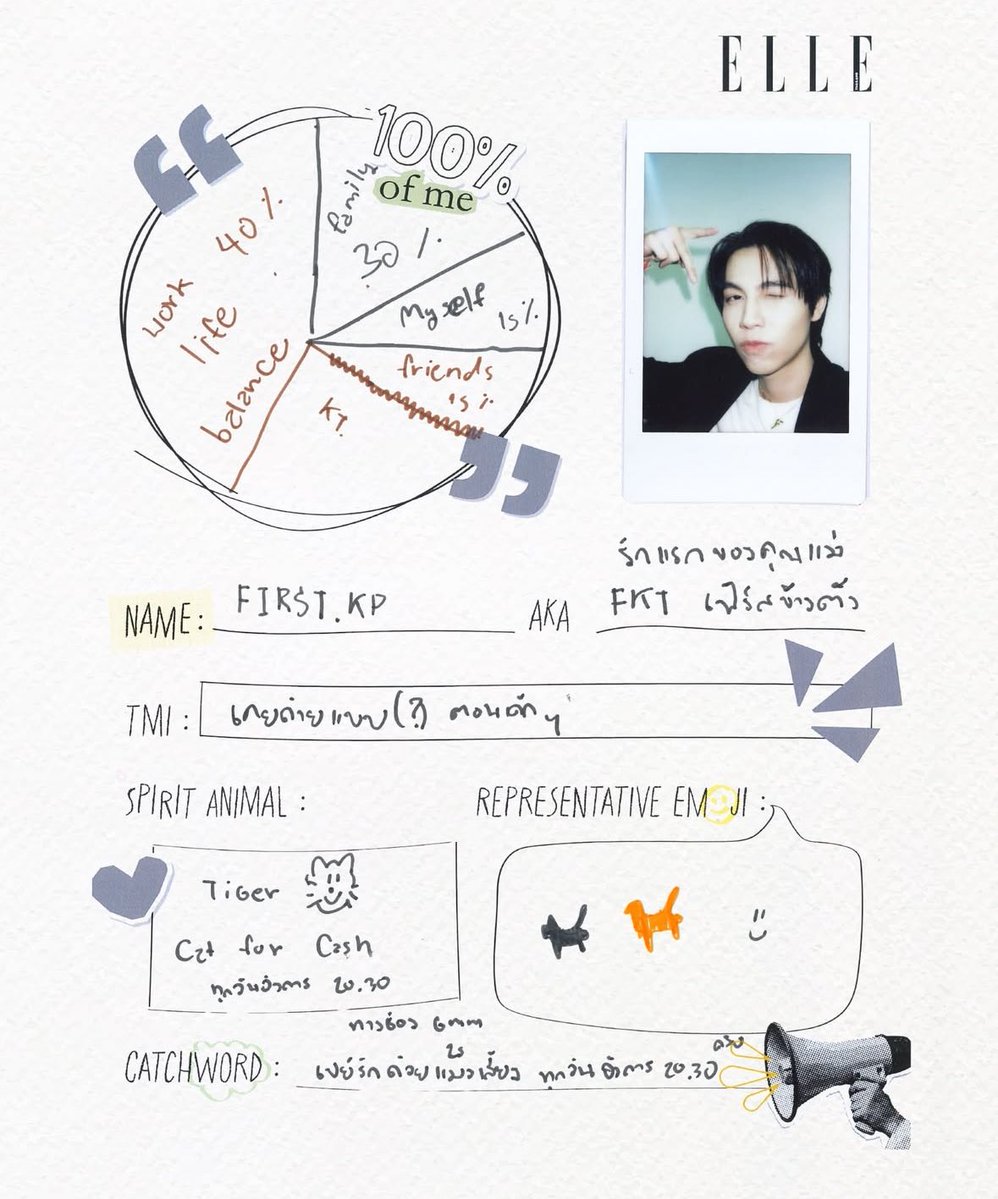 ELLE
100%
of me
family
30%
Myself
15%
friends
15%
KT.
work
life
balance
40%
รักแรกของคุณแม่
NAME: FIRST.KP
AKA FKT เฟิร์สข้าวตัง
TMI : เคยถ่ายแบบ(?) ตอนเด็กๆ
SPIRIT ANIMAL :
Tiger
Cat for Cash
ทุกวันอังคาร 20.30
REPRESENTATIVE EMOJI :
ทางช่อง GMM 25
CATCHWORD : เปย์รักด้วยแมวเลี้ยง ทุกวันอังคาร 20.30 ครับ